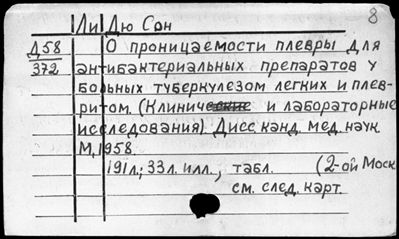 8
Ли Дю Сон
Д58
372
О проницаемости плевры для
антибактериальных препаратов у
больных туберкулезом легких и плев-
ритом. (Клинические и лабораторные
исследования). Дисс. канд. мед. наук
М., 1958.
191л.; 33л. илл., табл. (2-ой Моск
см. след. карт.